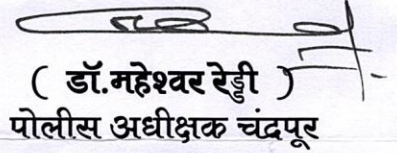 ( डॉ.महेश्वर रेड्डी )
पोलीस अधीक्षक चंद्रपूर